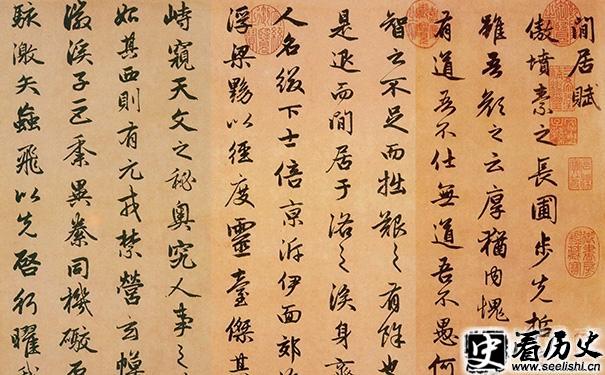 閒居賦
傲墳素之長圃步先哲
雖吾顏之云厚猶內愧
有道吾不仕無道吾不愚何
智之不足而拙艱之有餘也
是退而閒居于洛之涘身齊
人名綴下士倍京泝伊面郊
浮梁黝以徑度靈臺傑其
峙窺天文之秘奧究人事之
如其西則有元戎禁營玄幙
徽溪子巨黍異絭同機礮石
駭激矢蝱飛以先啓行曜我
史看历史
www.seelishi.cn